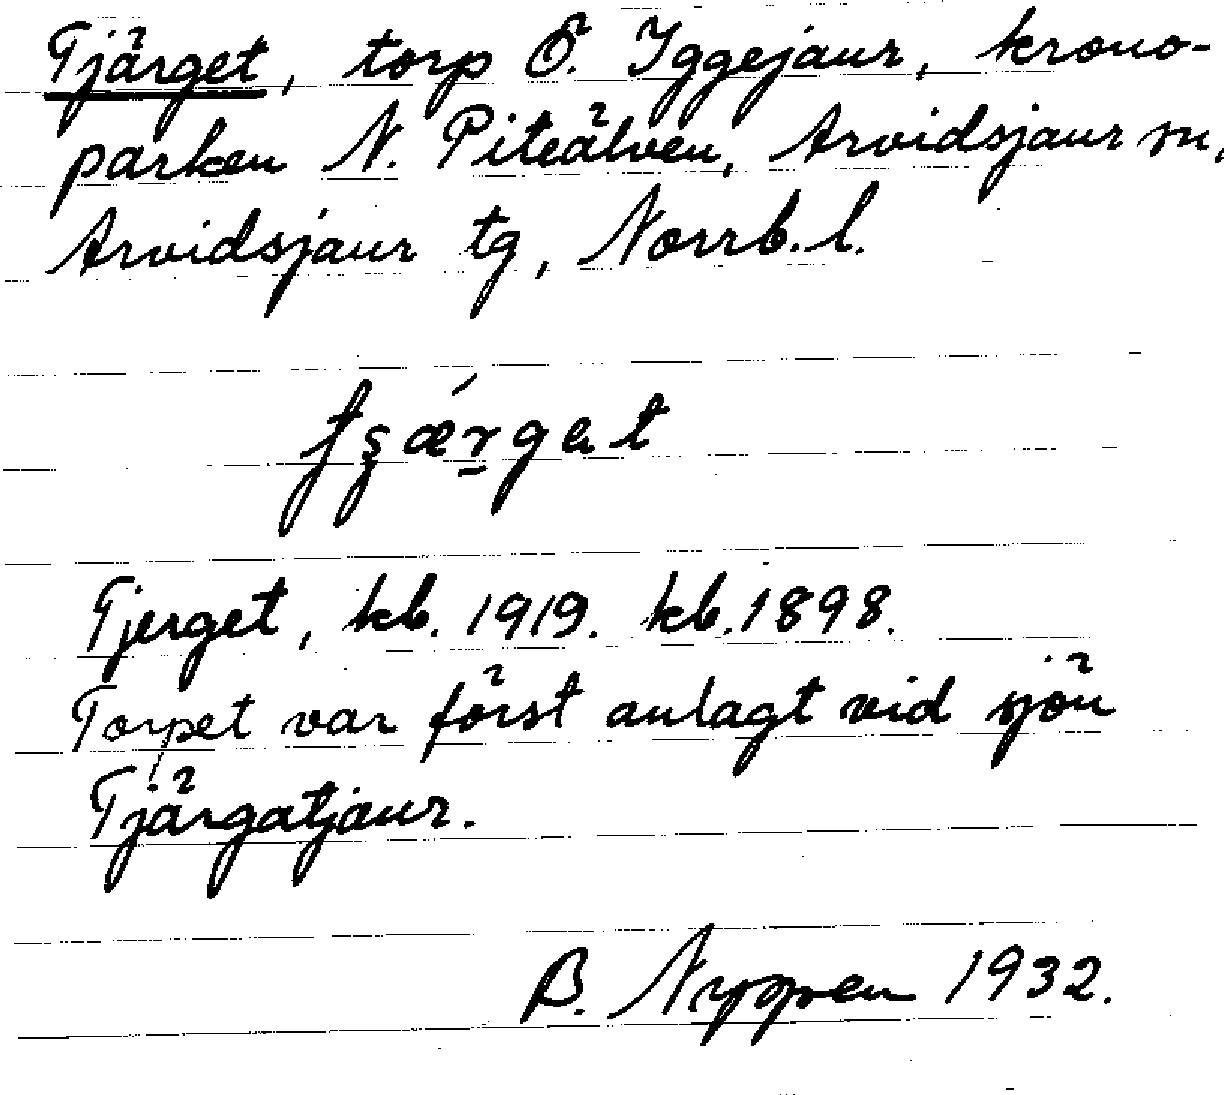 Tjärget, torp Ö. Iggejaur, krono-
parken N. Piteälven, Arvidsjaur sn,
Arvidsjaur tg, Norrb. l.
Tjerget, kb. 1919. kb. 1898.
Torpet var först anlagt vid sjön
Tjärgatjaur.
B. Nyppen 1932.